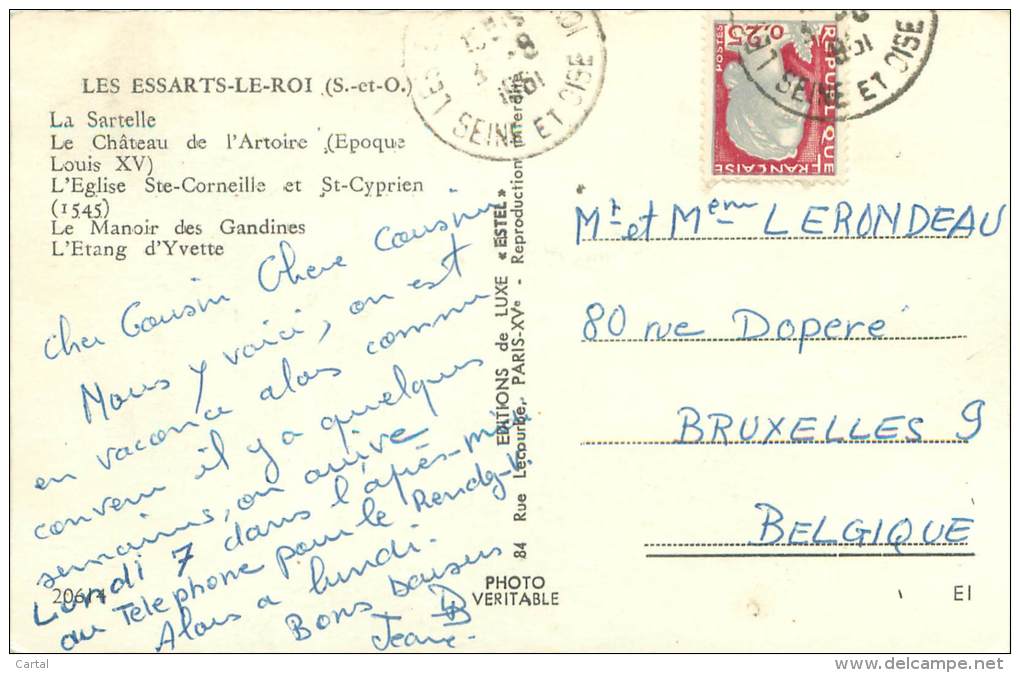 LES ESSARTS-LE-ROI (S.-et-O.)
La Sartelle
Le Château de l'Artoire (Epoque
Louis XV)
L'Eglise Ste-Corneille et St-Cyprien
(1545)
Le Manoir des Gandines
L'Etang d'Yvette
Cher Cousin Chere Cousine
Nous y voici, on est
en vacance alors comme
convenu il y a quelques
semaines, on arrive
Lundi 7 dans l'après-midi
au Telephone pour le Rendez-V.
Alors a lundi.
Bons baisers
Jeanne
20614
EDITIONS de LUXE «ESTEL»
84 Rue Lecourbe, PARIS-XVe - Reproduction interdite
PHOTO
VERITABLE
SEINE ET OISE
1961
SEINE ET OISE
POSTES
0,25
REPUBLIQUE
FRANÇAISE
Mr et Mème LERONDEAU
80 rue Doperé
BRUXELLES 9
BELGIQUE
EI
Cartal
www.delcampe.net